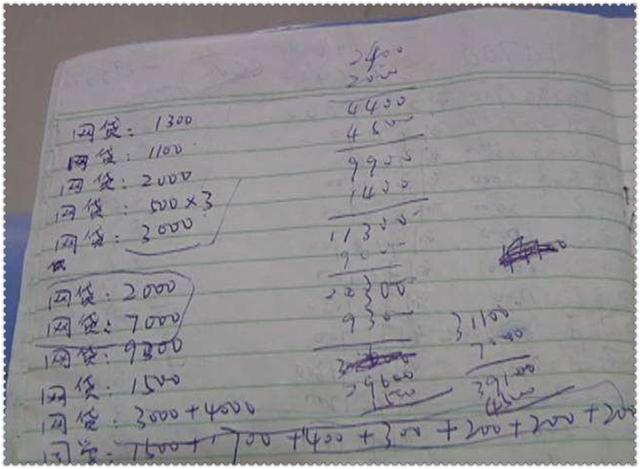 网贷: 1300
网贷: 1100
网贷: 2000
网贷: 500×3
网贷: 3000
网贷: 2000
网贷: 7000
网贷: 9300
网贷: 1500
网贷: 3000+4000
+400+300+200+200+200
2400
2000
4400
9900
1400
11300
9000
9300
29600
1500
31100
39100